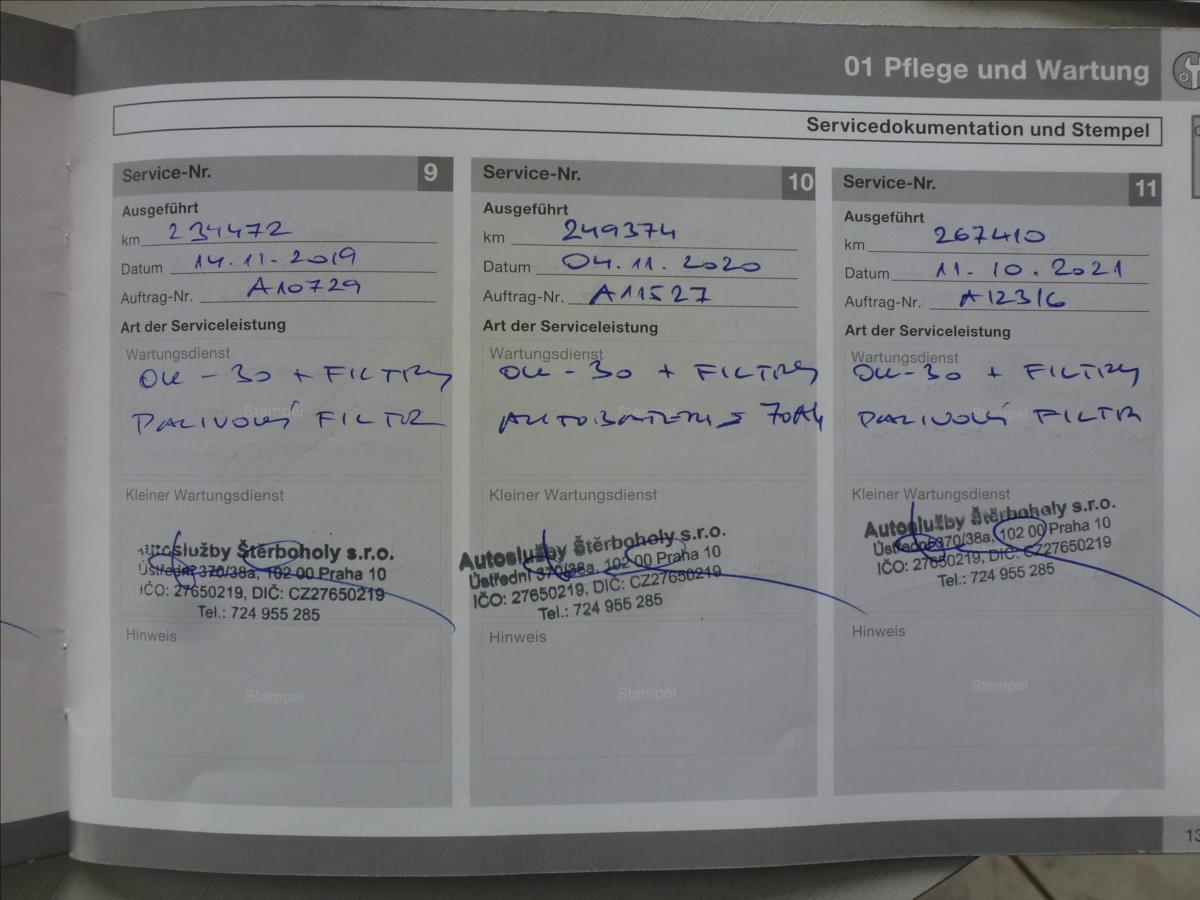 01 Pflege und Wartung
Servicedokumentation und Stempel
Service-Nr. 9
Ausgeführt
km 234472
Datum 14.11.2019
Auftrag-Nr. A10729
Art der Serviceleistung
Wartungsdienst
OW-30 + FILTRY
Stempel
PALIVOVÝ FILTR
Kleiner Wartungsdienst
Autoslužby Štěrboholy s.r.o.
Ústřední 370/38a, 102 00 Praha 10
IČO: 27650219, DIČ: CZ27650219
Tel.: 724 955 285
Hinweis
Stempel
Service-Nr. 10
Ausgeführt
km 249374
Datum 04.11.2020
Auftrag-Nr. A11527
Art der Serviceleistung
Wartungsdienst
OW-30 + FILTRY
AUTOBATERIE 70Ah
Kleiner Wartungsdienst
Autoslužby Štěrboholy s.r.o.
Ústřední 370/38a, 102 00 Praha 10
IČO: 27650219, DIČ: CZ27650219
Tel.: 724 955 285
Hinweis
Stempel
Service-Nr. 11
Ausgeführt
km 267410
Datum 11.10.2021
Auftrag-Nr. A12316
Art der Serviceleistung
Wartungsdienst
OW-30 + FILTRY
Stempel
PALIVOVÝ FILTR
Kleiner Wartungsdienst
Autoslužby Štěrboholy s.r.o.
Ústřední 370/38a, 102 00 Praha 10
IČO: 27650219, DIČ: CZ27650219
Tel.: 724 955 285
Hinweis
Stempel